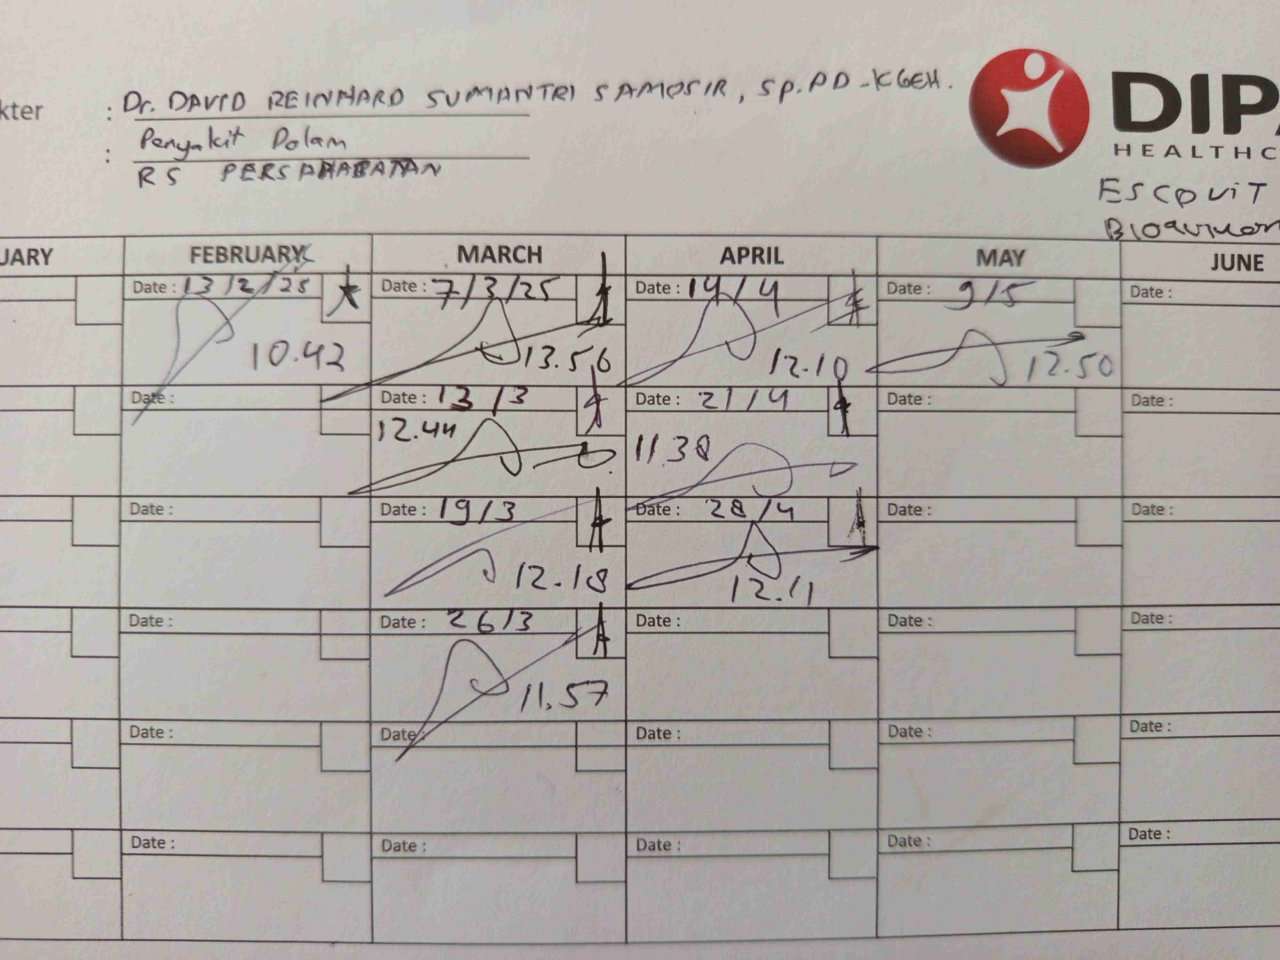 kter : Dr. DAVID REINHARD SUMANTRI SAMOSIR, Sp.PD-KGEH.
: Penyakit Dalam
RS PERSAHABATAN
DIPA
HEALTHC
ESCOVIT
UARY FEBRUARY MARCH APRIL MAY JUNE
Date : 13/2/25 Date : 7/3/25 Date : 14/4 Date : 9/5 Date :
10.42 13.56 12.10 12.50
Date : Date : 13/3 Date : 21/4 Date : Date :
12.44 11.38
Date : Date : 19/3 Date : 28/4 Date : Date :
12.18 12.11
Date : Date : 26/3 Date : Date : Date :
11.57
Date : Date : Date : Date : Date :
Date : Date : Date : Date : Date :